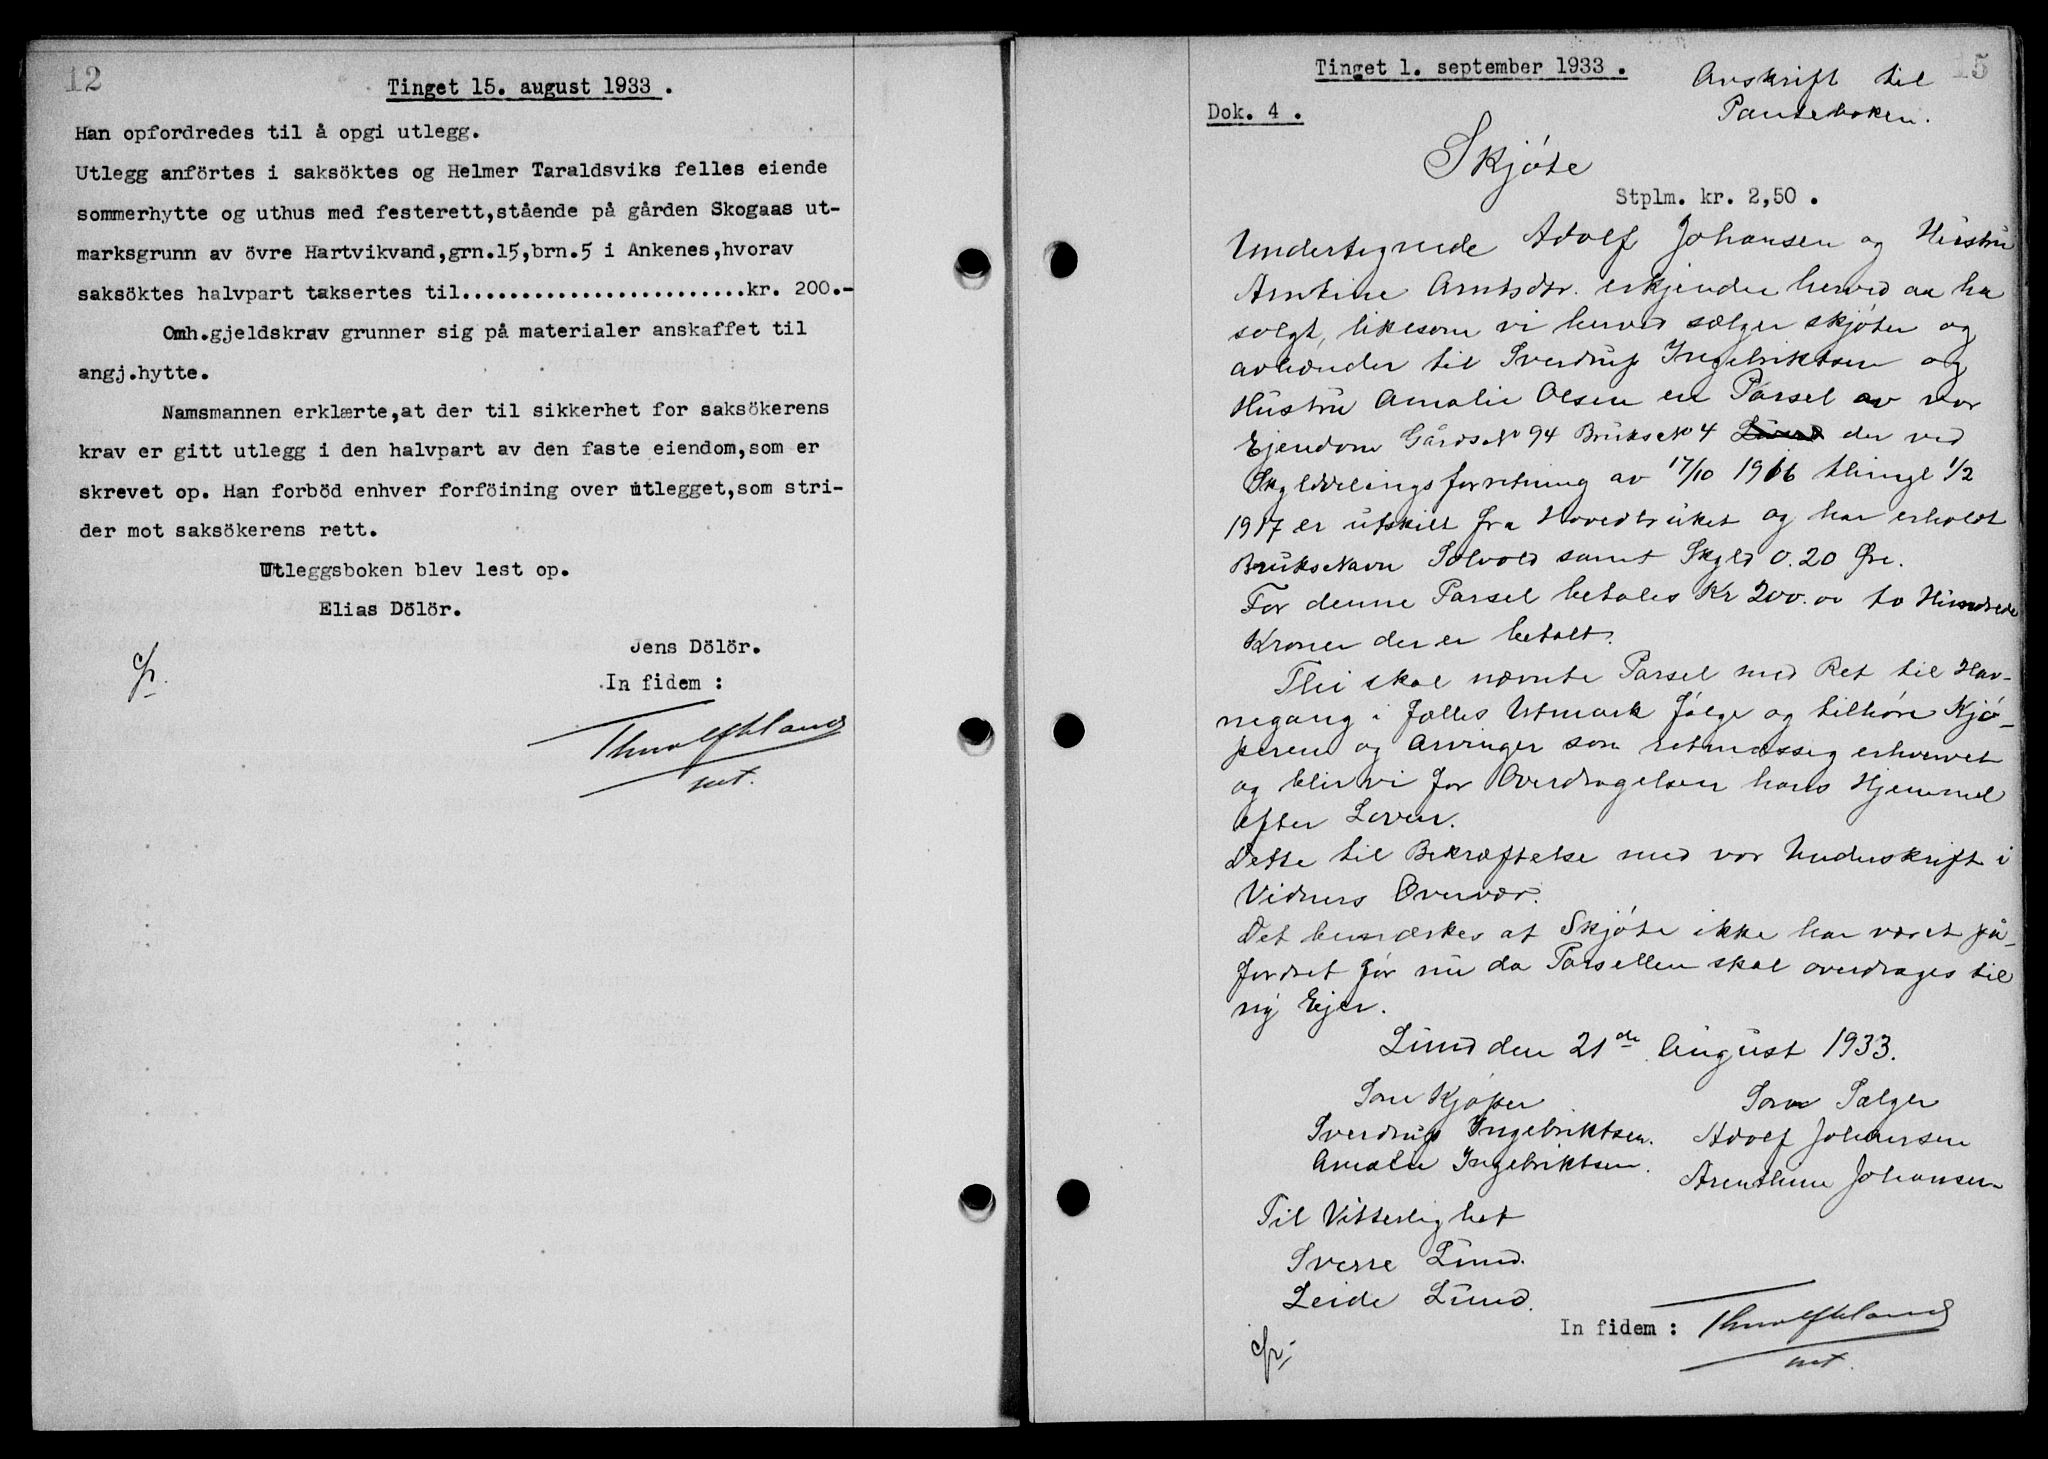 12
Tinget 15. august 1933 .
Han opfordredes til å opgi utlegg.
Utlegg anförtes i saksöktes og Helmer Taraldsviks felles eiende
sommerhytte og uthus med festerett,stående på gården Skogaas ut-
marksgrunn av övre Hartvikvand,grn.15,brn.5 i Ankenes,hvorav
saksöktes halvpart taksertes til........................kr. 200.-
Omh.gjeldskrav grunner sig på materialer anskaffet til
angj.hytte.
Namsmannen erklærte,at der til sikkerhet for saksökerens
krav er gitt utlegg i den halvpart av den faste eiendom,som er
skrevet op. Han forböd enhver forföining over utlegget,som stri-
der mot saksökerens rett.
Utleggsboken blev lest op.
Elias Dölör.
Jens Dölör.
In fidem :
15
Tinget 1. september 1933 .
Avskrift til
Panteboken.
Dok. 4 .
Skjöte
Stplm. kr. 2,50 .
Undertegnede Adolf Johansen og Hustru
Arntine Arntsdtr. erkjender herved aa ha
solgt, likesom vi herved sælger skjöter og
avhænder til Sverdrup Ingebriktsen og
Hustru Amalie Olsen en Parsel av vor
Ejendom Gårds No 94 Bruks No 4 Lund der ved
Skylddelingsforretning av 17/10 1916 tlingl 1/2
1917 er utskilt fra Hovedbruket og har erholdt
Bruksnavn Solvold samt Skyld 0.20 Øre.
For denne Parsel betales Kr 200.00 to Hundrede
Kroner der er betalt.
Thi skal nævnte Parsel med Ret til Hav-
negang i fælles Utmark fölge og tilhöre Kjö-
peren og Arvinger som retmæssig erhvervet
og blir vi for Overdragelsen hans Hjemmel
efter Loven.
Dette til Bekræftelse med vor Underskrift i
Vidners Overvær.
Det bemærkes at Skjöte ikke har været på-
fordret för nu da Parsellen skal overdrages til
ny Ejer.
Lund den 21de August 1933.
Som Kjöper
Som Sælger
Sverdrup Ingebriktsen.
Adolf Johansen
Amalie Ingebriktsen.
Arenthine Johansen
Til Vitterlighet
Sverre Lund.
Leide Lund.
In fidem :